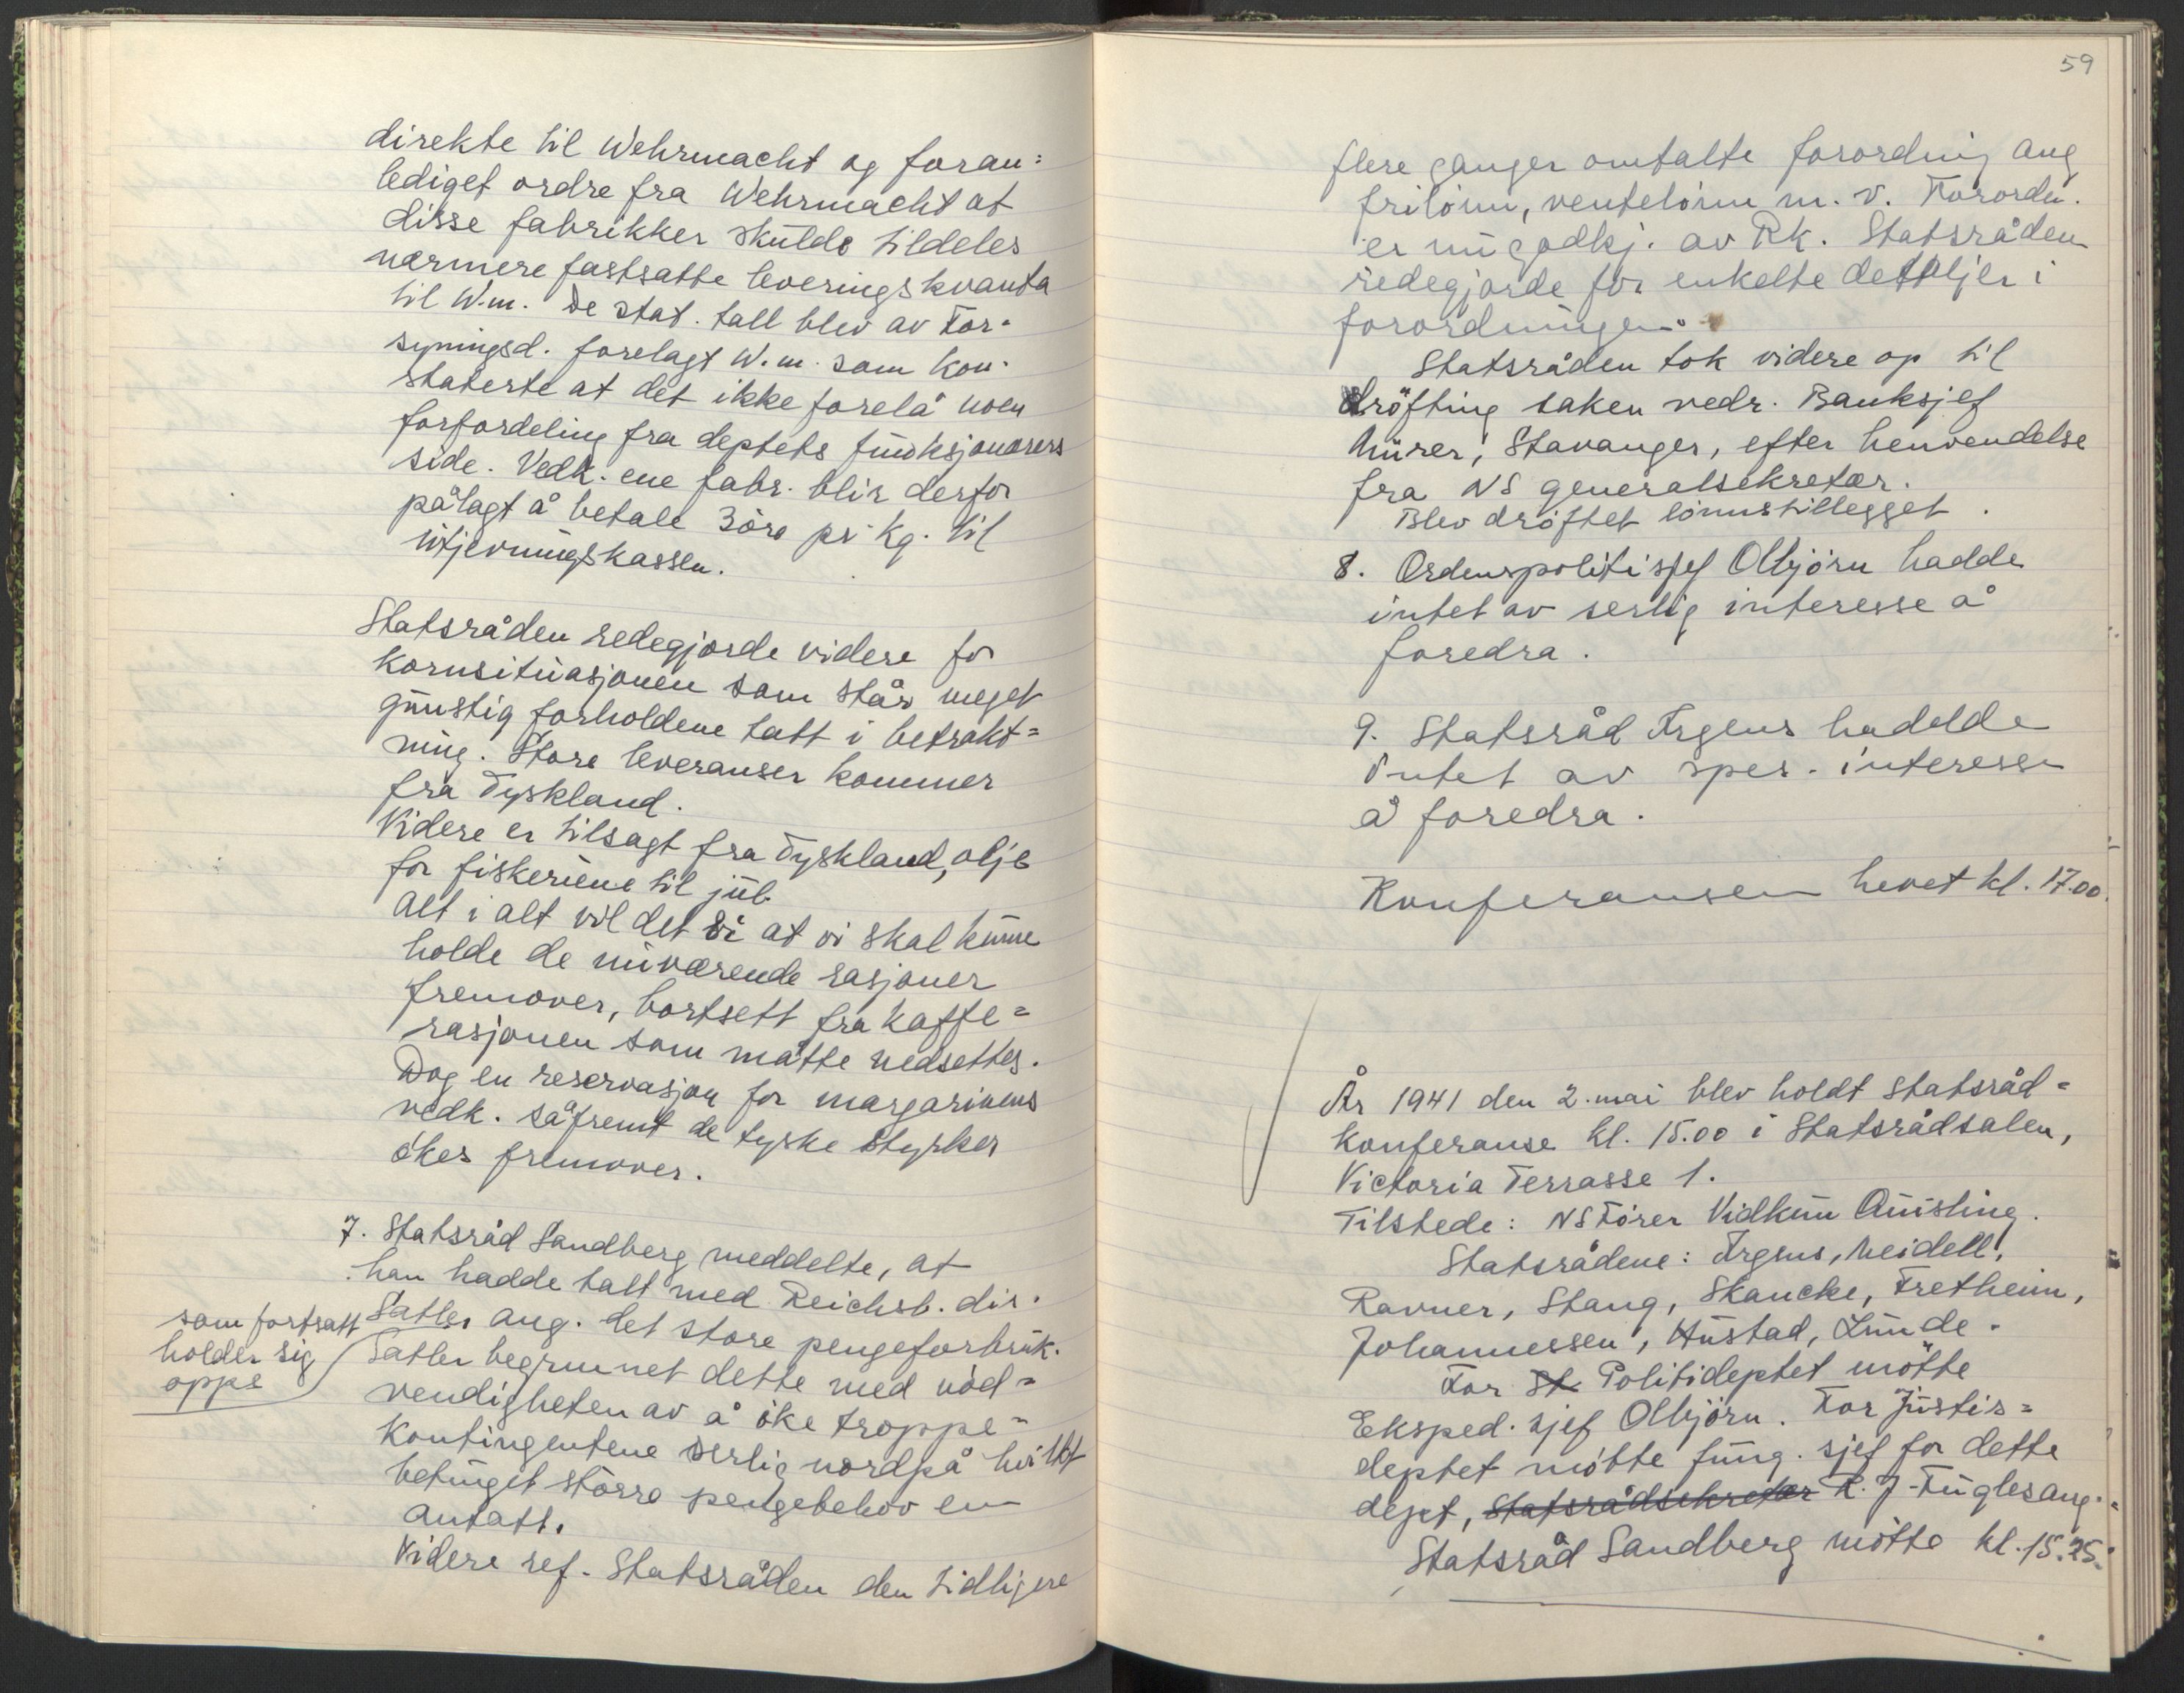 direkte til Wehrmacht og foran=
lediget ordre fra Wehrmacht at
disse fabrikker skulde tildeles
nærmere fastsatte leveringskvanta
til W.m. De stat. tall blev av For-
syningsd. forelagt W.m. som kon-
staterte at det ikke forelå noen
forfordeling fra deptets funksjonærers
side. Vedk. ene fabr. blir derfor
pålagt å betale 3 öre pr kg. til
utjevningskassen.
Statsråden redegjorde videre for
kornsituasjonen som står meget
gunstig forholdene tatt i betrakt=
ning. Store leveranser kommer
fra Tyskland.
Videre er tilsagt fra Tyskland, olje
for fiskeriene til juli.
Alt i alt vil det si at vi skal kunne
holde de nuværende rasjoner
fremover, bortsett fra kaffe=
rasjonen som måtte nedsettes.
Dog en reservasjon for margarinens
vedk. såfremt de tyske styrker
ökes fremover.
7. Statsråd Sandberg meddelte, at
han hadde talt med Reichsb. dir.
Satler ang. det store pengeforbruk.
som fortsatt
holder sig
oppe
Satler begrunnet dette med nöd=
vendigheten av å öke troppe=
kontingentene serlig nordpå hvilket
betinget större pengebehov enn
antatt.
Videre ref. Statsråden den tidligere
59
flere ganger omtalte forordning ang
frilönn, ventelönn m. v. Forordn.
er nu godkj. av RK. Statsråden
redegjorde for enkelte detaljer i
forordningen.
Statsråden tok videre op til
dröfting saken vedr. Banksjef
Mürer, Stavanger, efter henvendelse
fra NS generalsekretær.
Blev dröftet lönnstillegget.
8. Ordenspolitisjef Olbjörn hadde
intet av serlig interesse å
foredra.
9. Statsråd Irgens hadde
intet av spes. interesse
å foredra.
Konferansen hevet kl. 17.00.
År 1941 den 2. mai blev holdt statsråd=
konferanse kl. 15.00 i Statsrådsalen,
Victoria Terrasse 1.
Tilstede: NS Förer Vidkun Quisling.
Statsrådene: Irgens, Meidell,
Ravner, Stang, Skancke, Fretheim,
Johannessen, Hustad, Lunde.
For St. Politideptet mötte
Eksped. sjef Olbjörn. For Justis=
deptet mötte fung. sjef for dette
dept, Statsrådsekretær R. J. Fuglesang.
Statsråd Sandberg mötte kl. 15.25.